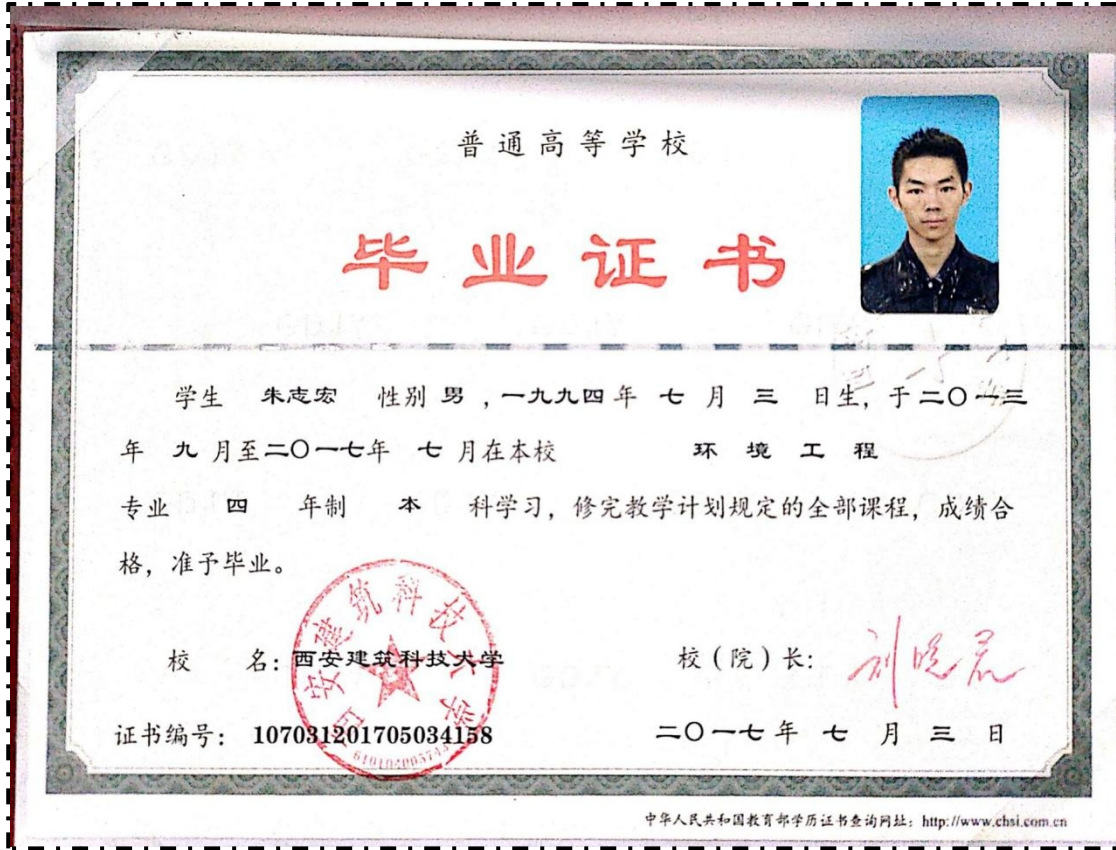 普通高等学校
毕业证书
学生 朱志宏 性别 男 ，一九九四年 七 月 三 日生，于二〇一三
年 九 月至二〇一七年 七 月在本校 环境工程
专业 四 年制 本 科学习，修完教学计划规定的全部课程，成绩合
格，准予毕业。
校 名：西安建筑科技大学 校（院）长：刘晓君
西安建筑科技大学
证书编号：107031201705034158 二〇一七年 七 月 三 日
中华人民共和国教育部学历证书查询网址：http://www.chsi.com.cn